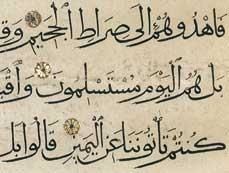 فَاهْدُوهُمْ إِلَى صِرَاطِ الْجَحِيمِ وَقِ
بَلْ هُمُ الْيَوْمَ مُسْتَسْلِمُونَ وَأَقْبَ
كُنتُمْ تَأْتُونَنَا عَنِ الْيَمِينِ قَالُوا بَل